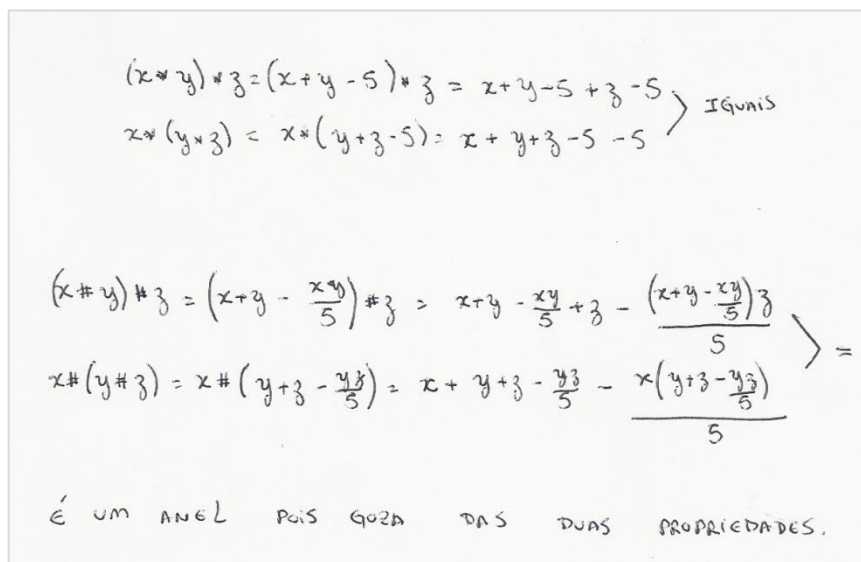 (x * y) * z = (x + y - 5) * z = x + y - 5 + z - 5
x * (y * z) = x * (y + z - 5) = x + y + z - 5 - 5 > IGUAIS
(x # y) # z = (x + y - xy/5) # z = x + y - xy/5 + z - (x + y - xy/5)z/5
x # (y # z) = x # (y + z - yz/5) = x + y + z - yz/5 - x(y + z - yz/5)/5 > =
É UM ANEL POIS GOZA DAS DUAS PROPRIEDADES.